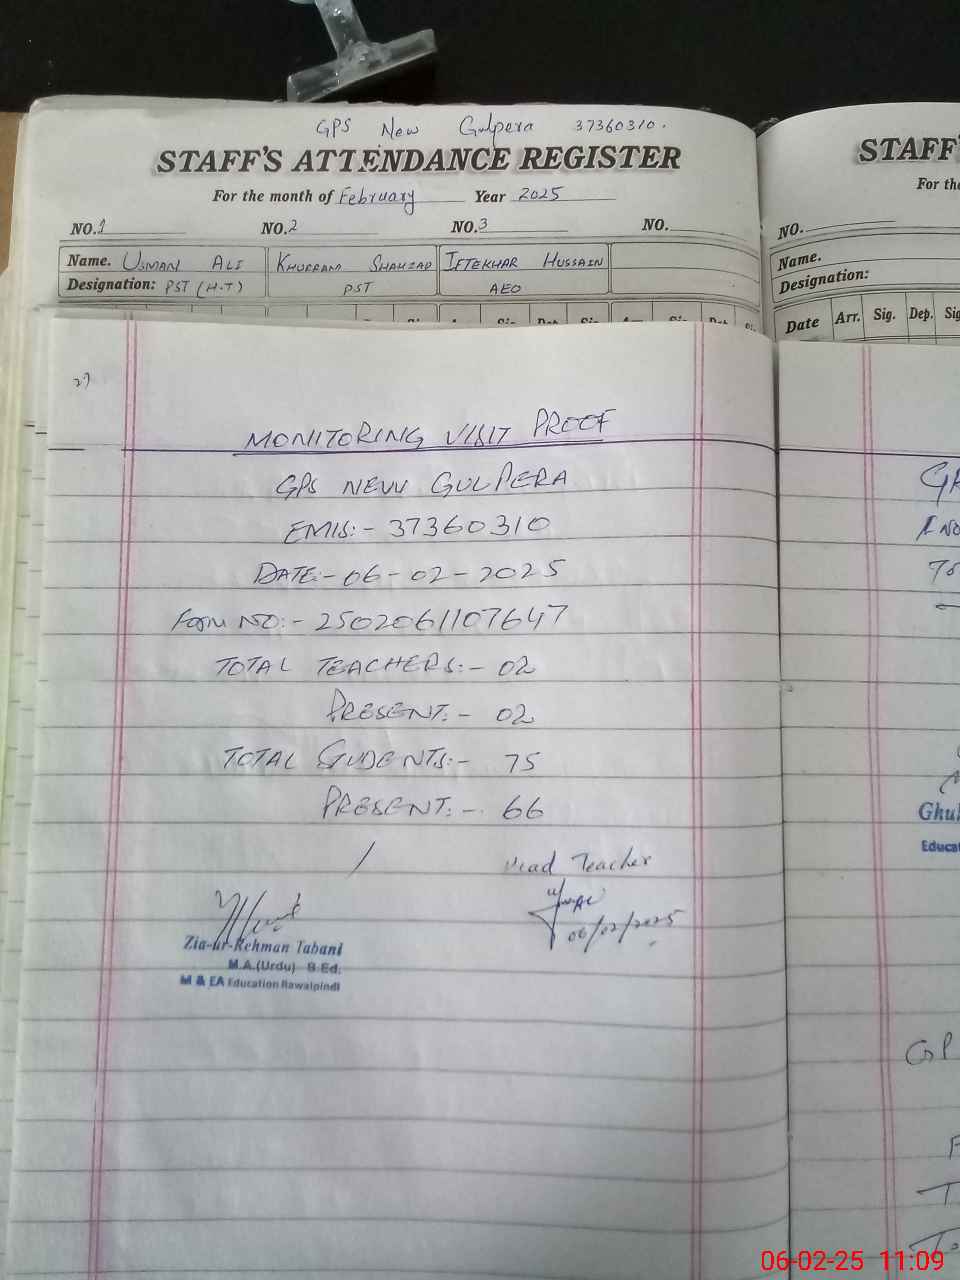 GPS New Gulpera 37360310.
STAFF'S ATTENDANCE REGISTER
For the month of February Year 2025
NO.1 NO.2 NO.3 NO.
Name. USMAN ALI KHURRAM SHAHZAD IFTEKHAR HUSSAIN
Designation: PST (H.T) PST AEO
STAFF'
For the
NO.
Name.
Designation:
Date Arr. Sig. Dep. Sig
27
MONITORING VISIT PROOF
GPS NEW GULPERA
EMIS:- 37360310
DATE:- 06-02-2025
FORM NO:- 2502061107647
TOTAL TEACHERS:- 02
PRESENT:- 02
TOTAL STUDENTS:- 75
PRESENT:- 66
Head Teacher
06/02/2025
Zia-ur-Rehman Tabani
M.A.(Urdu) B.Ed.
M & EA Education Rawalpindi
Ghul
Educat
06-02-25 11:09